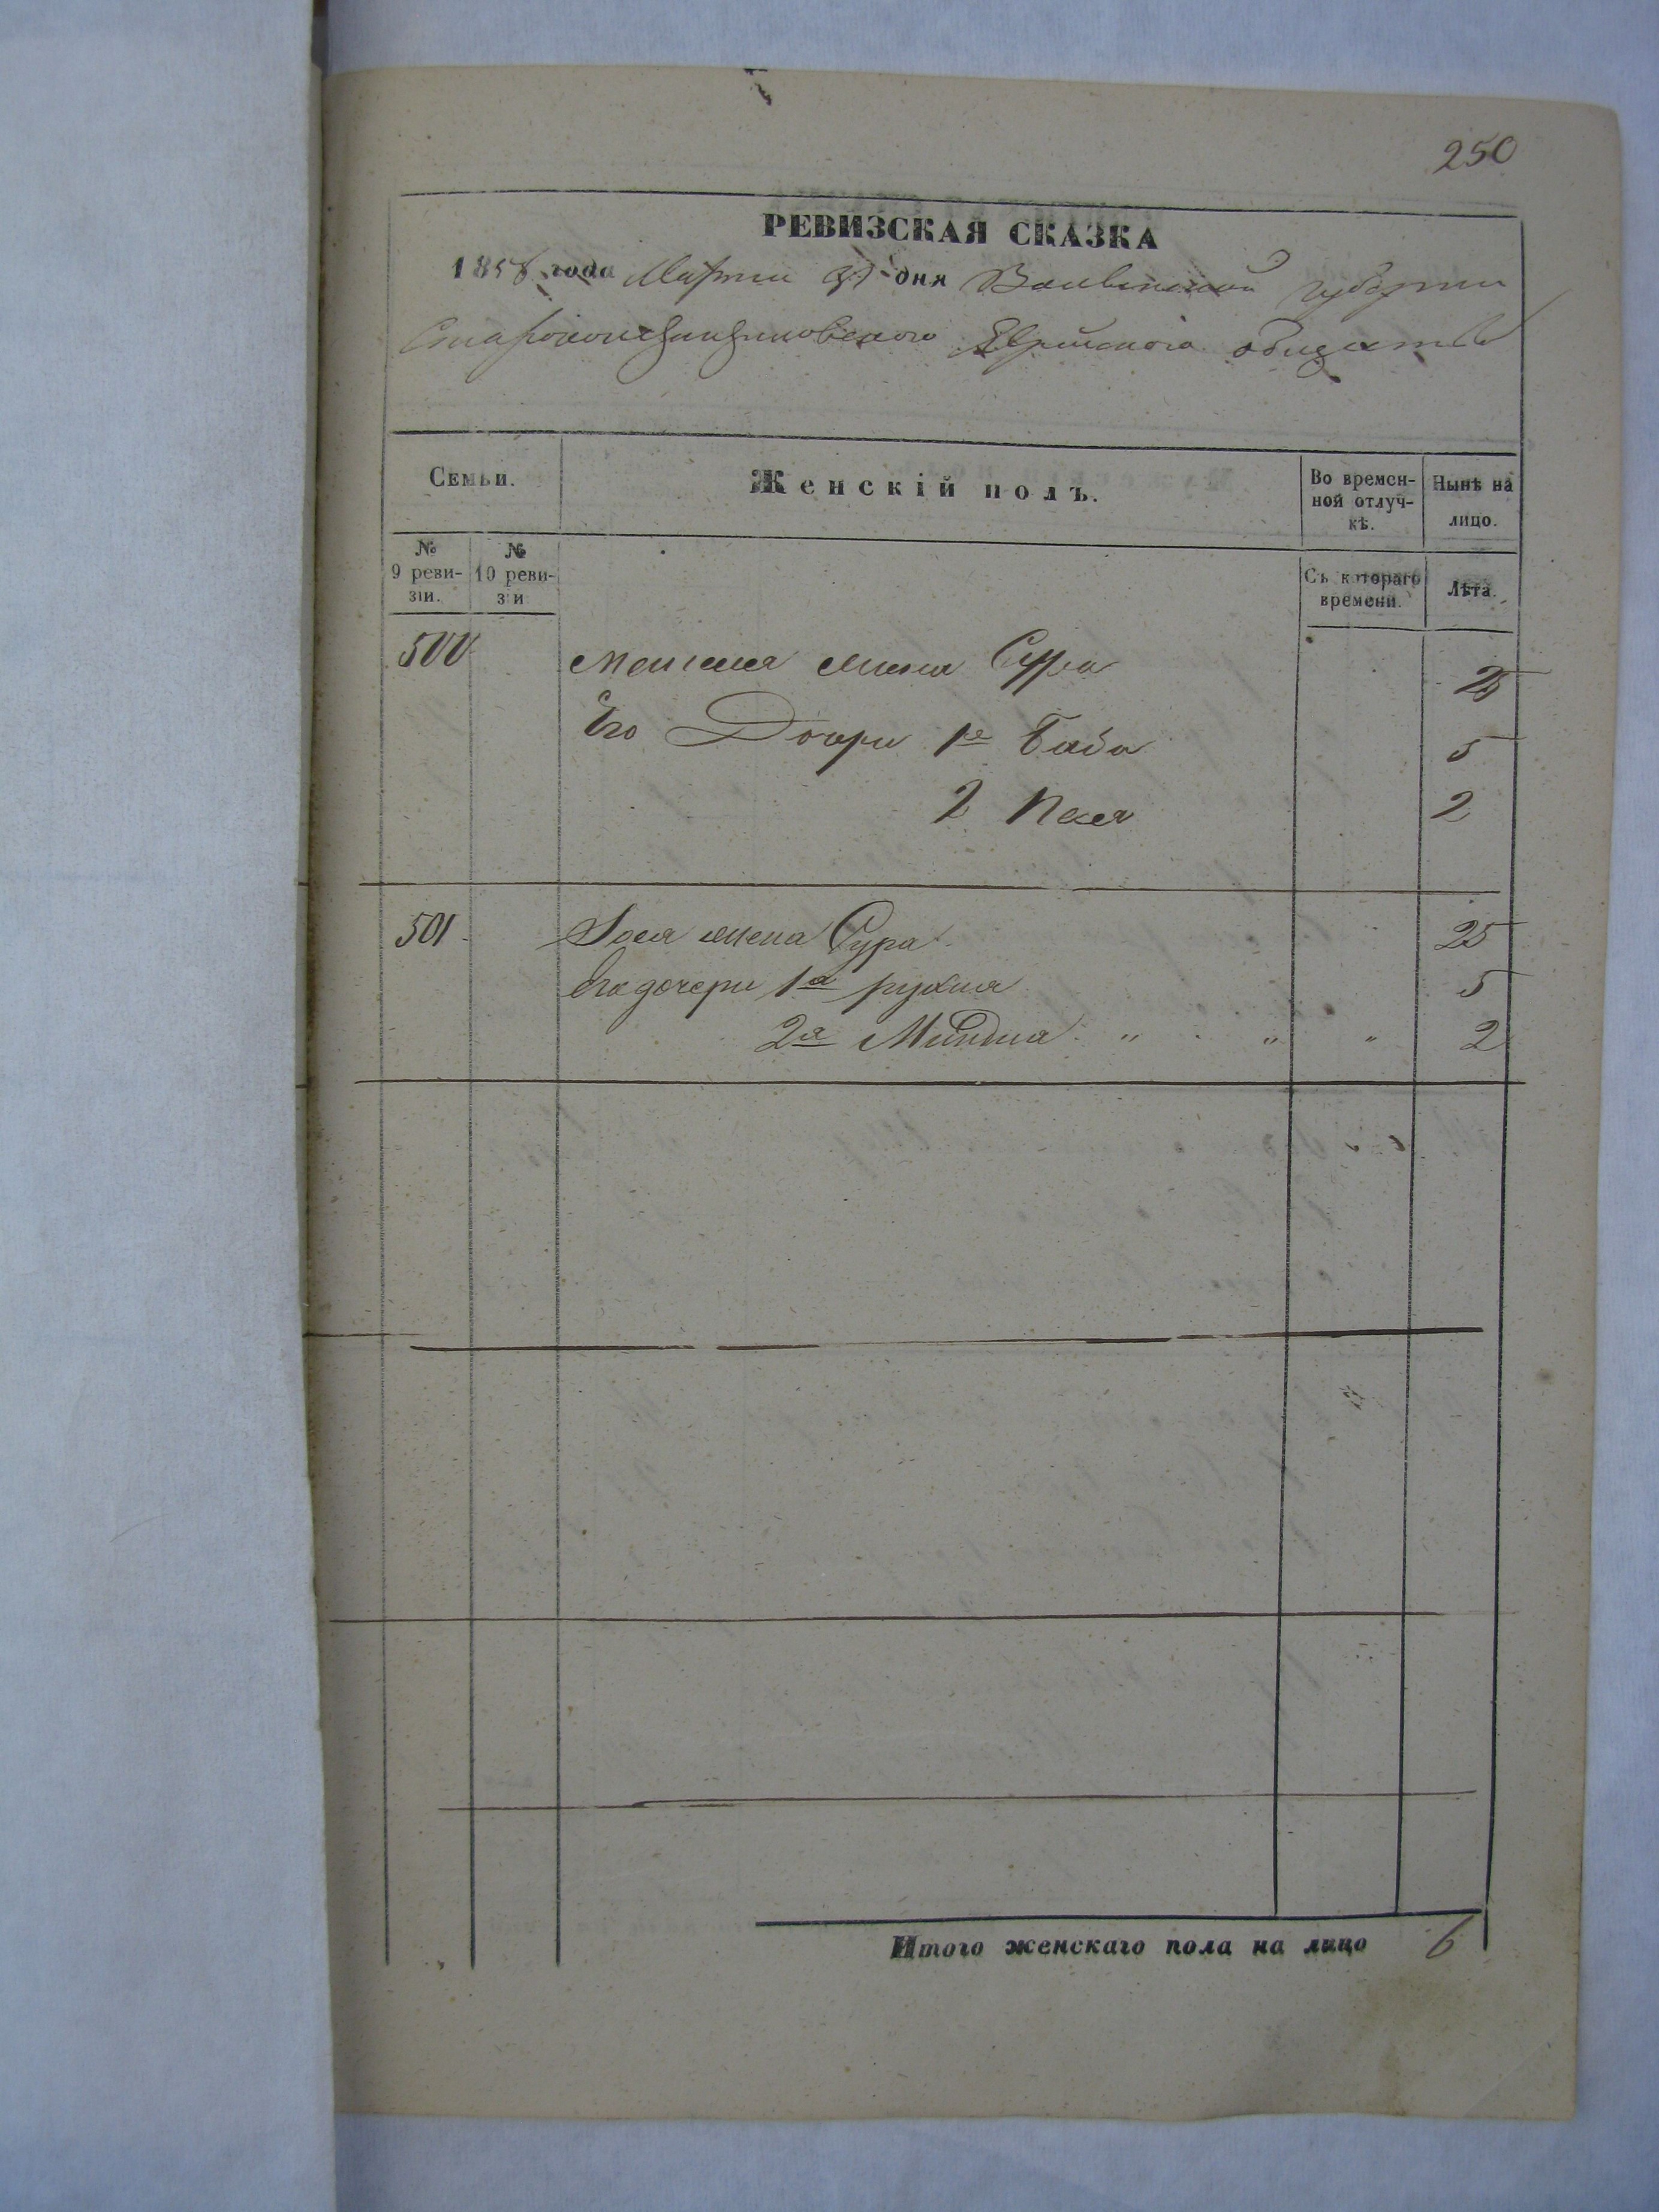 250
РЕВИЗСКАЯ СКАЗКА
1858 года Марта 31 дня Волынской губернии
Староконстантиновского Еврейского общества
Семьи.
Женскій полъ.
Во времен-
ной отлуч-
кѣ.
Нынѣ на
лицо.
№
9 реви-
зіи.
№
10 реви-
зіи
Съ котораго
времени.
Лѣта.
500 жена Сура 25
Его Дочери 1я Баба 5
2 Песя 2
501 жена Сура 25
Его дочери 1я рухля 5
2я Миндля „ „ „ 2
Итого женскаго пола на лицо 6